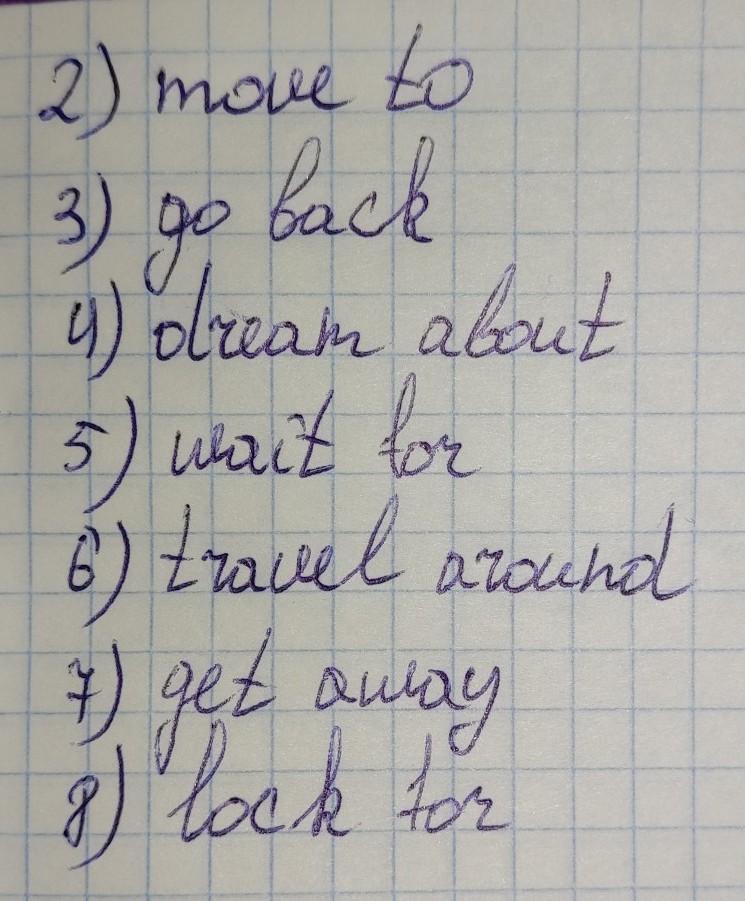 2) move to
3) go back
4) dream about
5) wait for
6) travel around
7) get away
8) look for